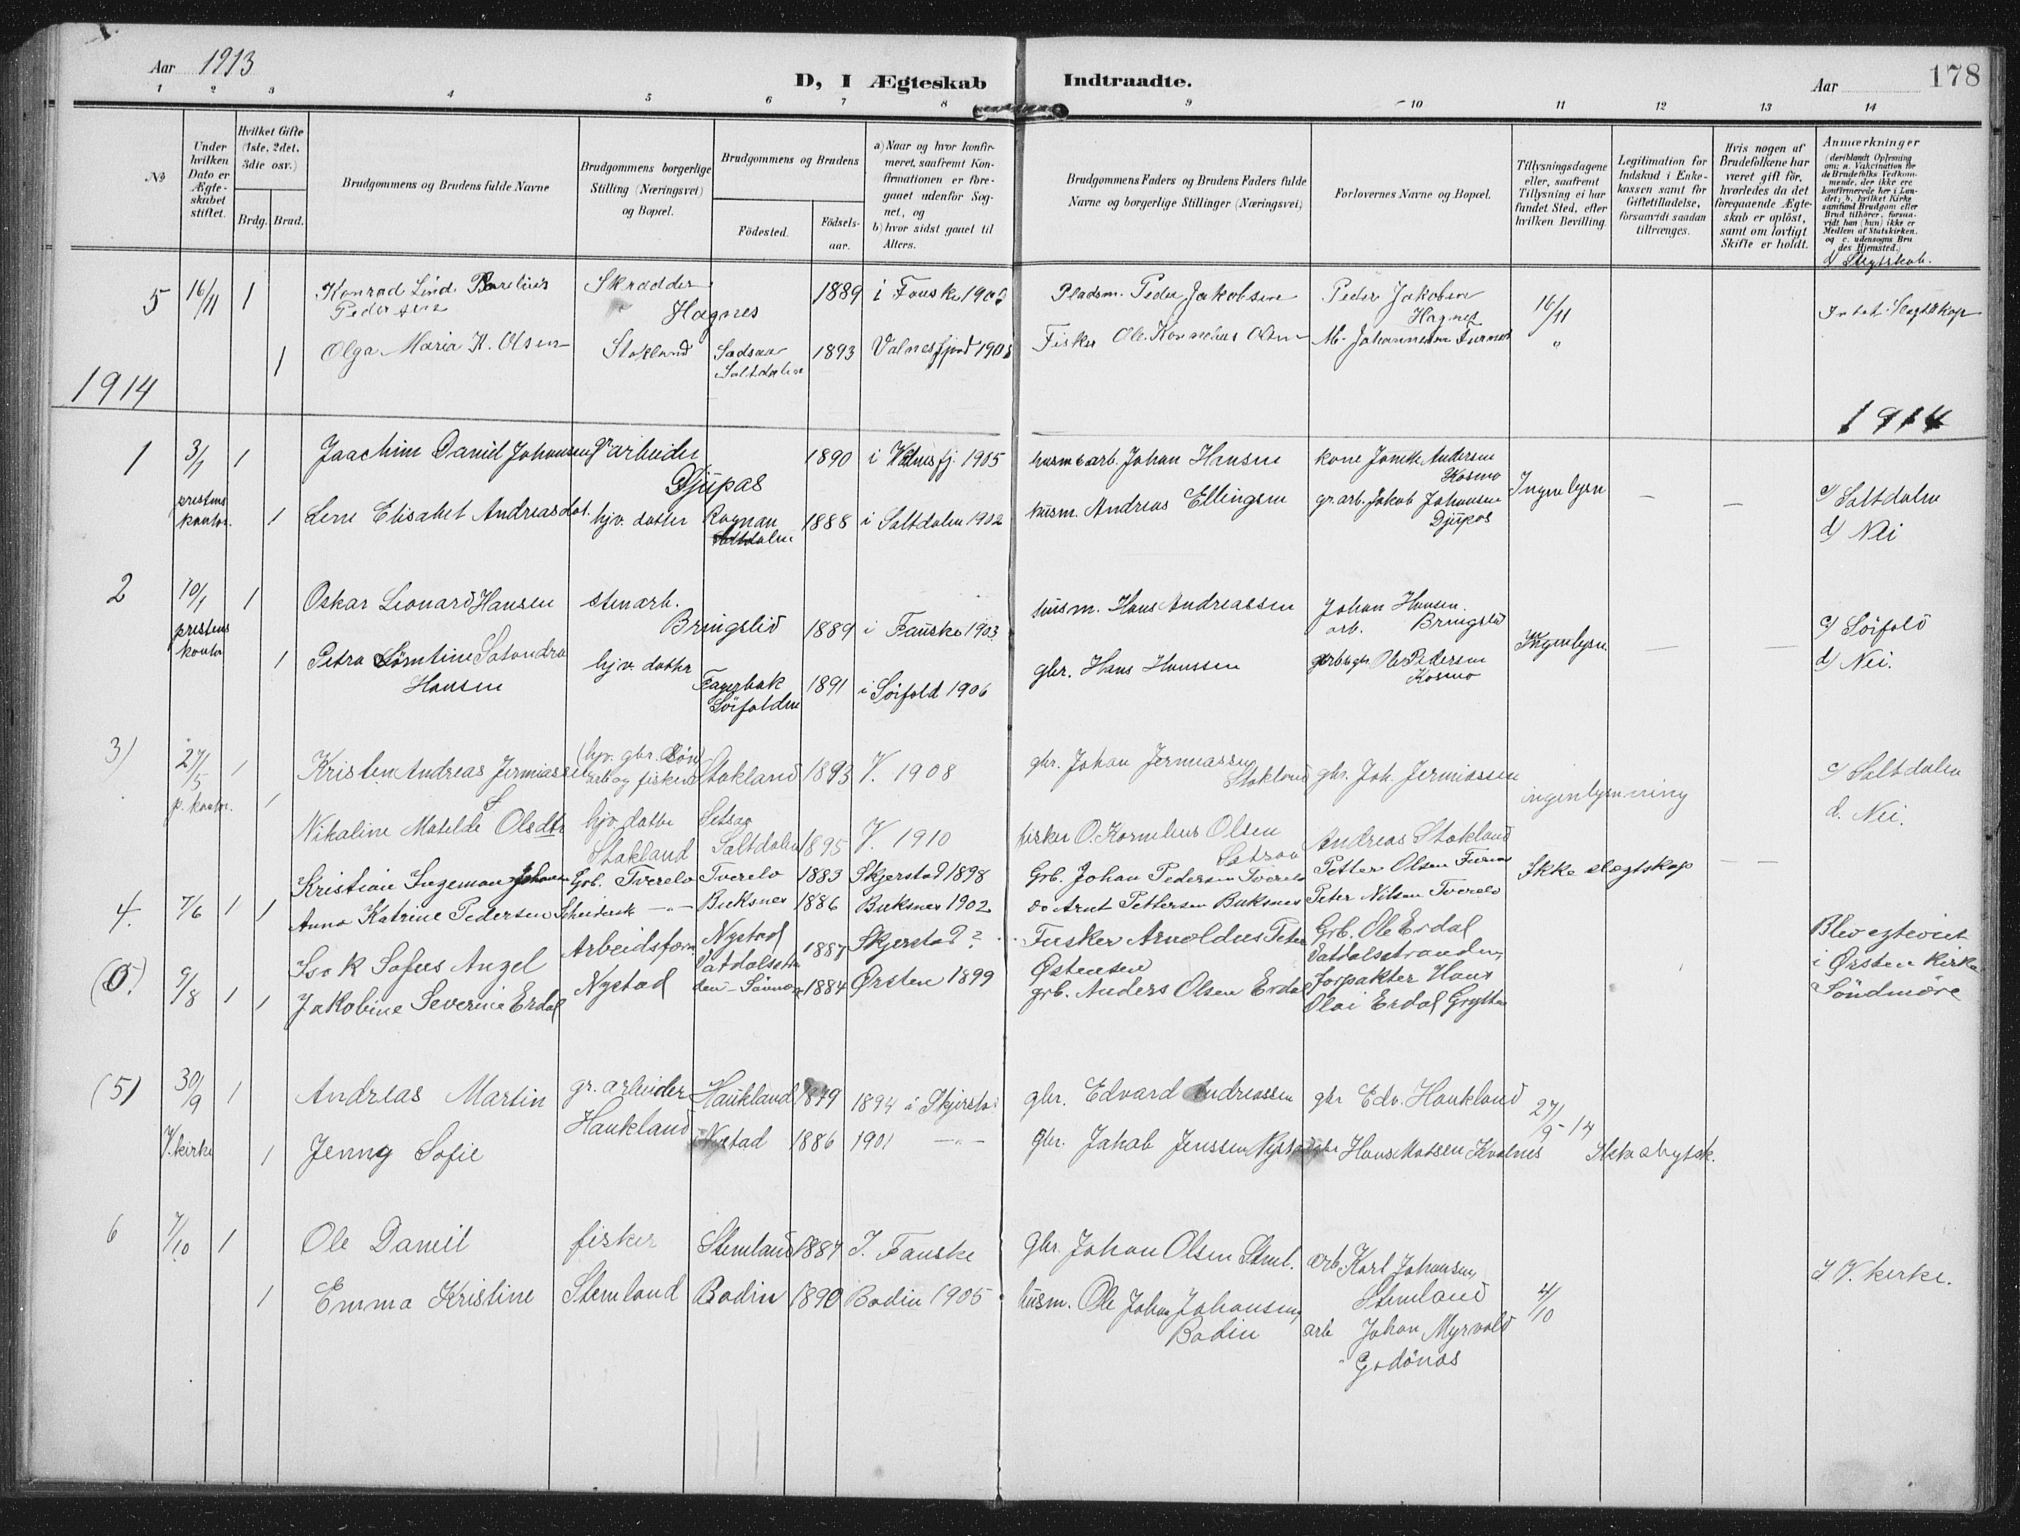 Aar 1913
D, I Ægteskab Indtraadte.
Aar 178
1 2 3 4 5 6 7 8 9 10 11 12 13 14
No
Under hvilken Dato er Ægteskabet stiftet.
Hvilket Gifte (1ste, 2det, 3die osv.)
Brdg. Brud.
Brudgommens og Brudens fulde Navne
Brudgommens borgerlige Stilling (Næringsvei) og Bopæl.
Brudgommens og Brudens
Fødested. Fødselsaar.
a) Naar og hvor konfirmeret, saafremt Konfirmationen er foregaaet udenfor Sognet, og
b) hvor sidst gaaet til Alters.
Brudgommens Faders og Brudens Faders fulde Navne og borgerlige Stillinger (Næringsvei)
Forlovernes Navne og Bopæl.
Tillysningsdagene eller, saafremt Tillysning ei har fundet Sted, efter hvilken Bevilling.
Legitimation for Indskud i Enkekassen samt for Giftetilladelse, forsaavidt saadan tiltrænges.
Hvis nogen af Brudefolkene har været gift før, hvorledes da det foregaaende Ægteskab er opløst, samt om lovligt Skifte er holdt.
Anmærkninger
d) Slegtskab.
5 16/11 1 Konrad Lind Pedersen Skrædder Hagnes 1889 i Fauske Pladsm. Peder Jakobsen Peder Jakobsen Hagnes 16/11 Intet Slegtskap
1 Olga Maria K. Olsen Stokland Saltdalen 1893 Valnesfjord Fisker Ole Kornelius Olsen "
1914 1914
1 3/1 1 Joachim Daniel Johansen arbeider Djupås 1890 i 1905 Johan Hansen kone Andersen Kosmo Ingen lysn
prestens kontor. 1 Lene Elisabet Andreasdat. hjv. datter Rognan Saltdalen 1888 i Saltdalen 1902 husm. Andreas Ellingsen gr. arb. Jakob Johansen Djupos — — c) Saltdalen d) Nei
2 10/1 1 Oskar Leonard Hansen stenarb. Bringslid 1889 i Fauske 1903 husm. Hans Andreassen Johan Hansen arb. Bringslid Ingen lysn — — c) Sörfold d) Nei.
prestens kontor 1 Petra Hansen hjv. datter Fagerbak Sörfolden 1891 i Sörfold 1906 gbr. Hans Hanssen Ole Pedersen Kosmo
3) 27/5 1 Kristen Andreas Jermiassen (hjv. gbr. sön arb og fisker) Stokland 1893 V. 1908 gbr. Johan Jermiassen Stokland gbr. Joh. Jermiassen ingen lysning c) Saltdalen
p. kontor. 1 Nikaline Matilde Olsdtr hjv. datter Stokland Setsaa Saltdalen 1895 V. 1910 fisker O. Kornelius Olsen Andreas Stokland d. Nei.
4. 7/6 1 Kristian Ingeman Johansen Grb. Tverelv Tverelv 1883 Skjerstad 1898 Grb. Johan Pedersen Tverelv Petter Olsen Ikke slegtskap — —
1 Anna Katrine Pedersen —"— Buksnes 1886 Buksnes 1902 do Arnt Pettersen Buksnes Peter Nilsen Tverelv
(0.) 9/8 1 Isak Sofus Angel Arbeidsform Nystad Nystad 1887 Skjerstad? Fisker Arnoldus Peter Østensen Grb. Ole Erdal Vatdalsstranden, Blev egteviet i Ørsten kirke Söndmöre
1 Jakobine Severine Erdal 1884 Ørsten 1899 grb. Anders Olsen Erdal Forpakter Hans Olai Erdal Grytten
(5) 30/9 1 Andreas Martin gr. arbeider Haukland Haukland 1879 1894 i Skjerstad gbr. Edvard Andreassen gbr Edv. Haukland 27/9-14
V. kirke 1 Jenny Sofie Nystad 1886 1901 —"— gbr. Jakob Jenssen Nystad gbr Hans Matsen Kvalnes
6 7/10 1 Ole Daniel fisker Stemland Stemland 1887 I. Fauske gbr. Johan Olsen Steml. arb Karl Johansen, Stemland 4/10 I V. kirke.
1 Emma Kristine Bodin 1890 Bodin 1905 husm. Ole Johan Johansen, Bodin arb Johan Myrvold Godönas